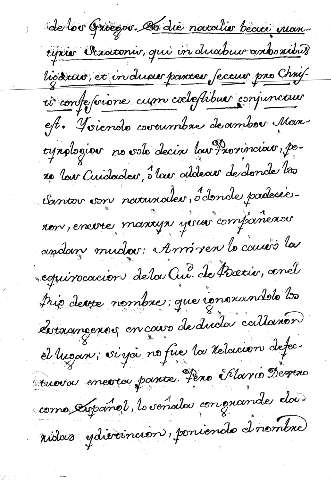 de los Griegos. Eo die natalis beati Mar-
tiris Stratonis, qui in duabus arboribus
ligatus, et in duas partes sectus pro Chris-
ti confessione cum coelestibus conjunctus
est. Y siendo costumbre de ambos Mar-
tyrologios no solo decir las Provincias, pe-
ro las Ciudades, ó las aldeas de donde los
Santos son naturales, ó donde padecie-
ron, en este martyr y sus compañeros
andan mudos: A mi ver lo causó la
equivocacion de la Ciu.d de Boetis, con el
Rio deste nombre; que ignorandolo los
estrangeros, en caso de duda callaron
el lugar; si ya no fue la relacion defec-
tuosa en esta parte. Pero Flavio Dextro
como Español, lo señala con grande cla-
ridad y distincion, poniendo el nombre